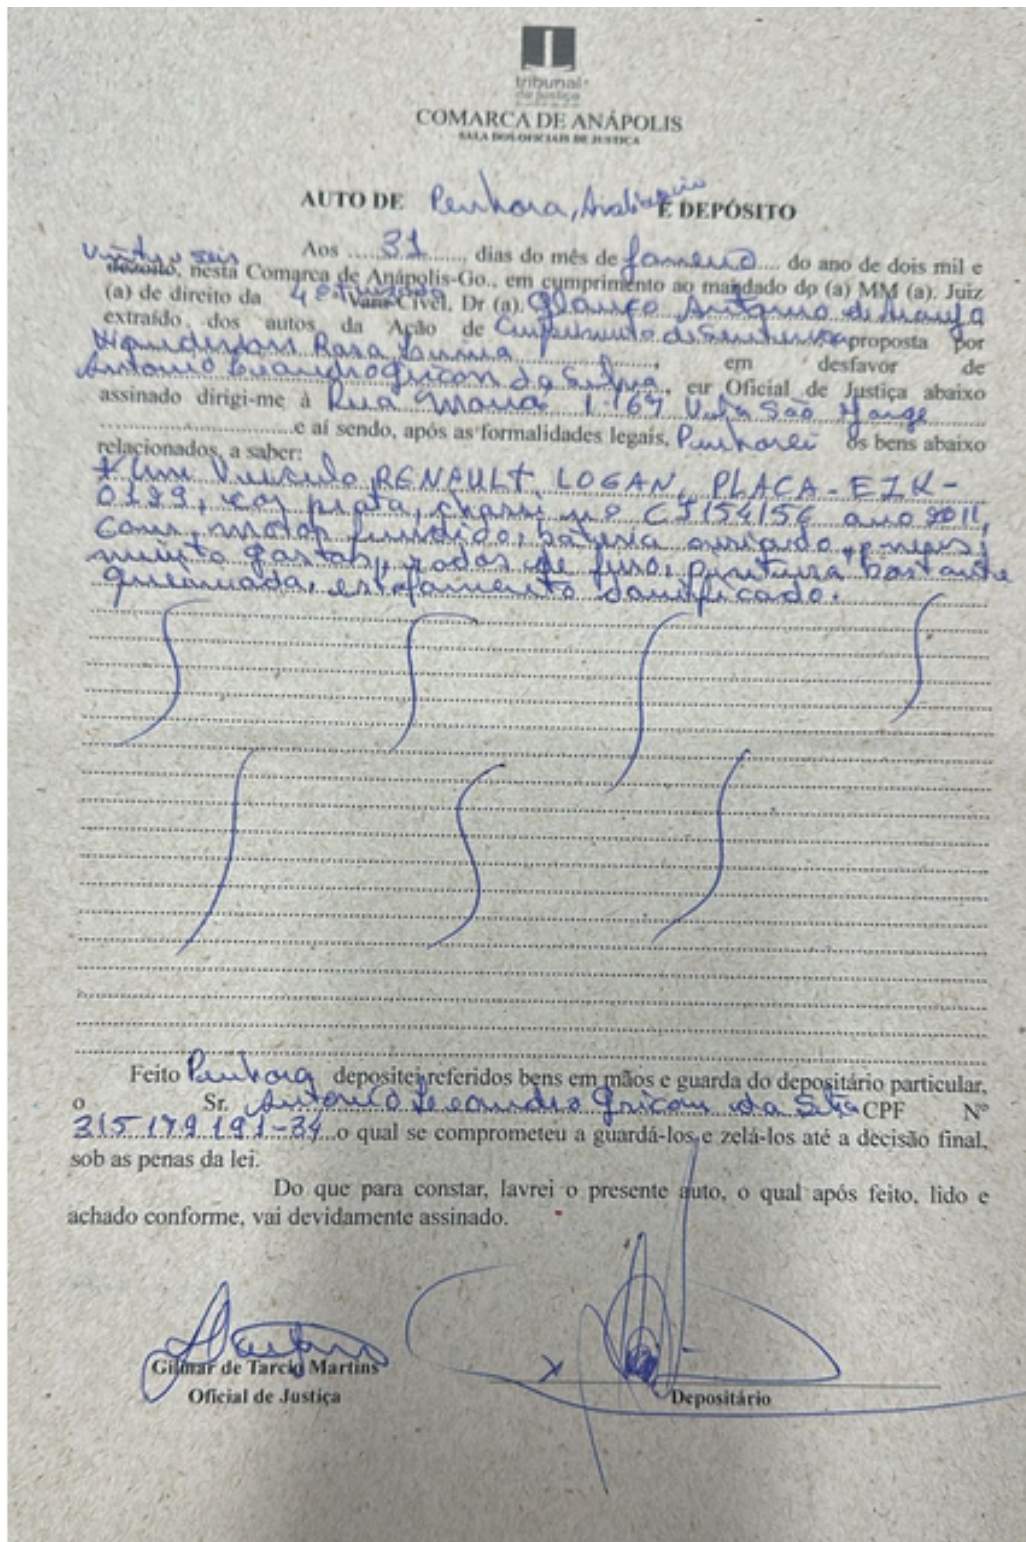 tribunal
de justiça
COMARCA DE ANÁPOLIS
SALA DOS OFICIAIS DE JUSTIÇA
AUTO DE Penhora, Avaliação E DEPÓSITO
vinte e seis Aos 31, dias do mês de Janeiro do ano de dois mil e
dezoito, nesta Comarca de Anápolis-Go., em cumprimento ao mandado do (a) MM (a). Juiz
(a) de direito da 4ª Vara Cível, Dr (a). Glauco Antônio de Araújo
extraído dos autos da Ação de Cumprimento de Sentença proposta por
Rosa, em desfavor de
Antonio Leandro da Silva, eu Oficial de Justiça abaixo
assinado dirigi-me à Rua Mauá 1-167 Vila São Jorge
e aí sendo, após as formalidades legais, Penhorei os bens abaixo
relacionados, a saber:
Um Veículo RENAULT LOGAN, PLACA-
cor prata, chassi nº CJ154156 ano 2011,
com motor fundido, bateria arriada, pneus
muito gastos, rodas de ferro, pintura bastante
queimada, estofamento danificado.
Feito Penhora depositei referidos bens em mãos e guarda do depositário particular,
o Sr. Antonio Leandro da Silva CPF Nº
315 179 191-34 o qual se comprometeu a guardá-los e zelá-los até a decisão final,
sob as penas da lei.
Do que para constar, lavrei o presente auto, o qual após feito, lido e
achado conforme, vai devidamente assinado.
Gilmar de Tarcio Martins
Oficial de Justiça
x
Depositário